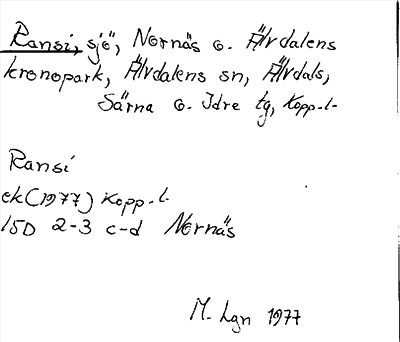 Ransi, sjö, Nornäs o. Älvdalens
kronopark, Älvdalens sn, Älvdals,
Särna o. Idre tg, Kopp-l-
Ransi
ek (1977) Kopp-l-
15D 2-3 c-d Nornäs
M. Lgn 1977